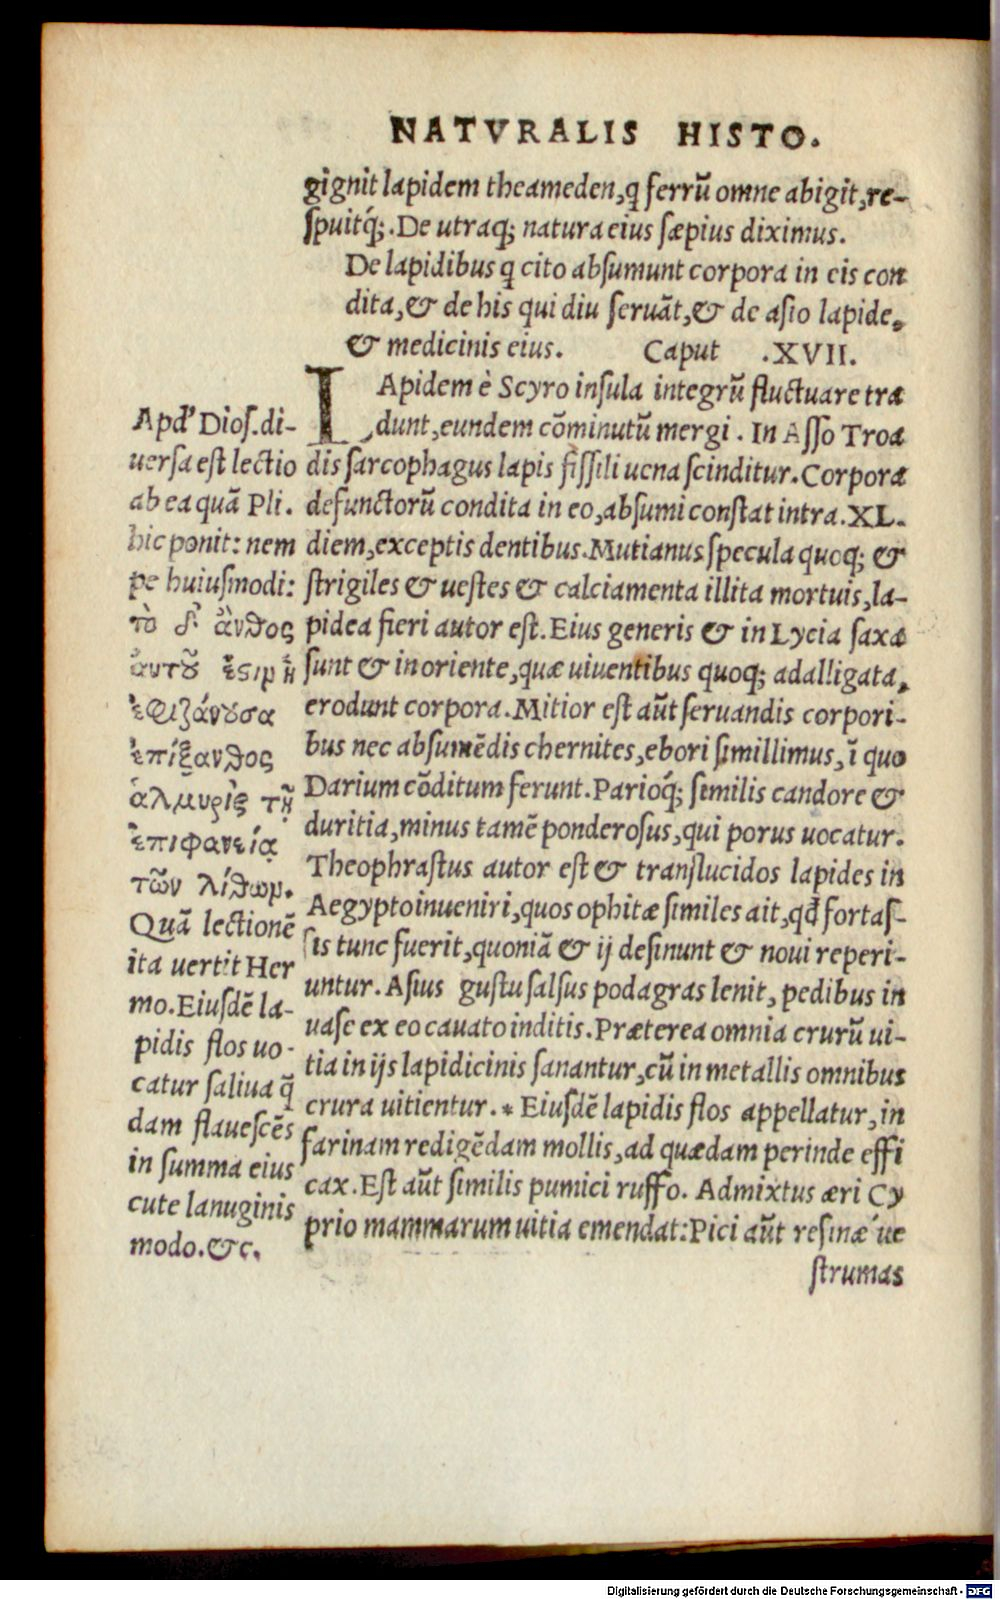 NATVRALIS HISTO.
gignit lapidem theameden, ꝗ ferrũ omne abigit, re-
ſpuitq́;. De utraq; natura eius ſæpius diximus.
De lapidibus ꝗ cito abſumunt corpora in eis con
dita, & de his qui diu ſeruãt, & de aſio lapide,
& medicinis eius. Caput .XVII.
LApidem è Scyro inſula integrũ fluctuare tra
dunt, eundem cõminutũ mergi. In Aſſo Troa
dis ſarcophagus lapis fiſſili uena ſcinditur. Corpora
defunctorũ condita in eo, abſumi conſtat intra. XL.
diem, exceptis dentibus. Mutianus ſpecula quoq; &
ſtrigiles & ueſtes & calciamenta illita mortuis, la-
pidea fieri autor eſt. Eius generis & in Lycia ſaxa
ſunt & in oriente, quæ uiuentibus quoq; adalligata,
erodunt corpora. Mitior eſt aũt ſeruandis corpori-
bus nec abſumẽdis chernites, ebori ſimillimus, ĩ quo
Darium cõditum ferunt. Parioq́; ſimilis candore &
duritia, minus tamẽ ponderoſus, qui porus uocatur.
Theophraſtus autor eſt & tranſlucidos lapides in
Aegypto inueniri, quos ophitæ ſimiles ait, qđ fortaſ-
ſis tunc fuerit, quoniã & ij deſinunt & noui reperi-
untur. Aſius guſtu ſalſus podagras lenit, pedibus in
uaſe ex eo cauato inditis. Præterea omnia crurũ ui-
tia in ijs lapidicinis ſanantur, cũ in metallis omnibus
crura uitientur. * Eiuſdẽ lapidis flos appellatur, in
farinam redigẽdam mollis, ad quædam perinde effi
cax. Eſt aũt ſimilis pumici ruffo. Admixtus æri Cy
prio mammarum uitia emendat: Pici aũt reſinæ´ue
ſtrumas
Apd' Dioſ. di-
uerſa eſt lectio
ab ea quã Pli.
hic ponit: nem
pe huiuſmodi:
τὸ δ' ἄνθος
ἀυτοῦ ἐςιμ ἡ
ἐφιζάνουσα
ἐπίξανθος
ἁλμυρὶς τῇ
ἐπιφανείᾳ
τῶν λίθωμ.
Quã lectionẽ
ita uertit Her
mo. Eiuſdẽ la-
pidis flos uo-
catur ſaliua q̃
dam flaueſcẽs
in ſumma eius
cute lanuginis
modo. &c.
Digitalisierung gefördert durch die Deutsche Forschungsgemeinschaft - DFG